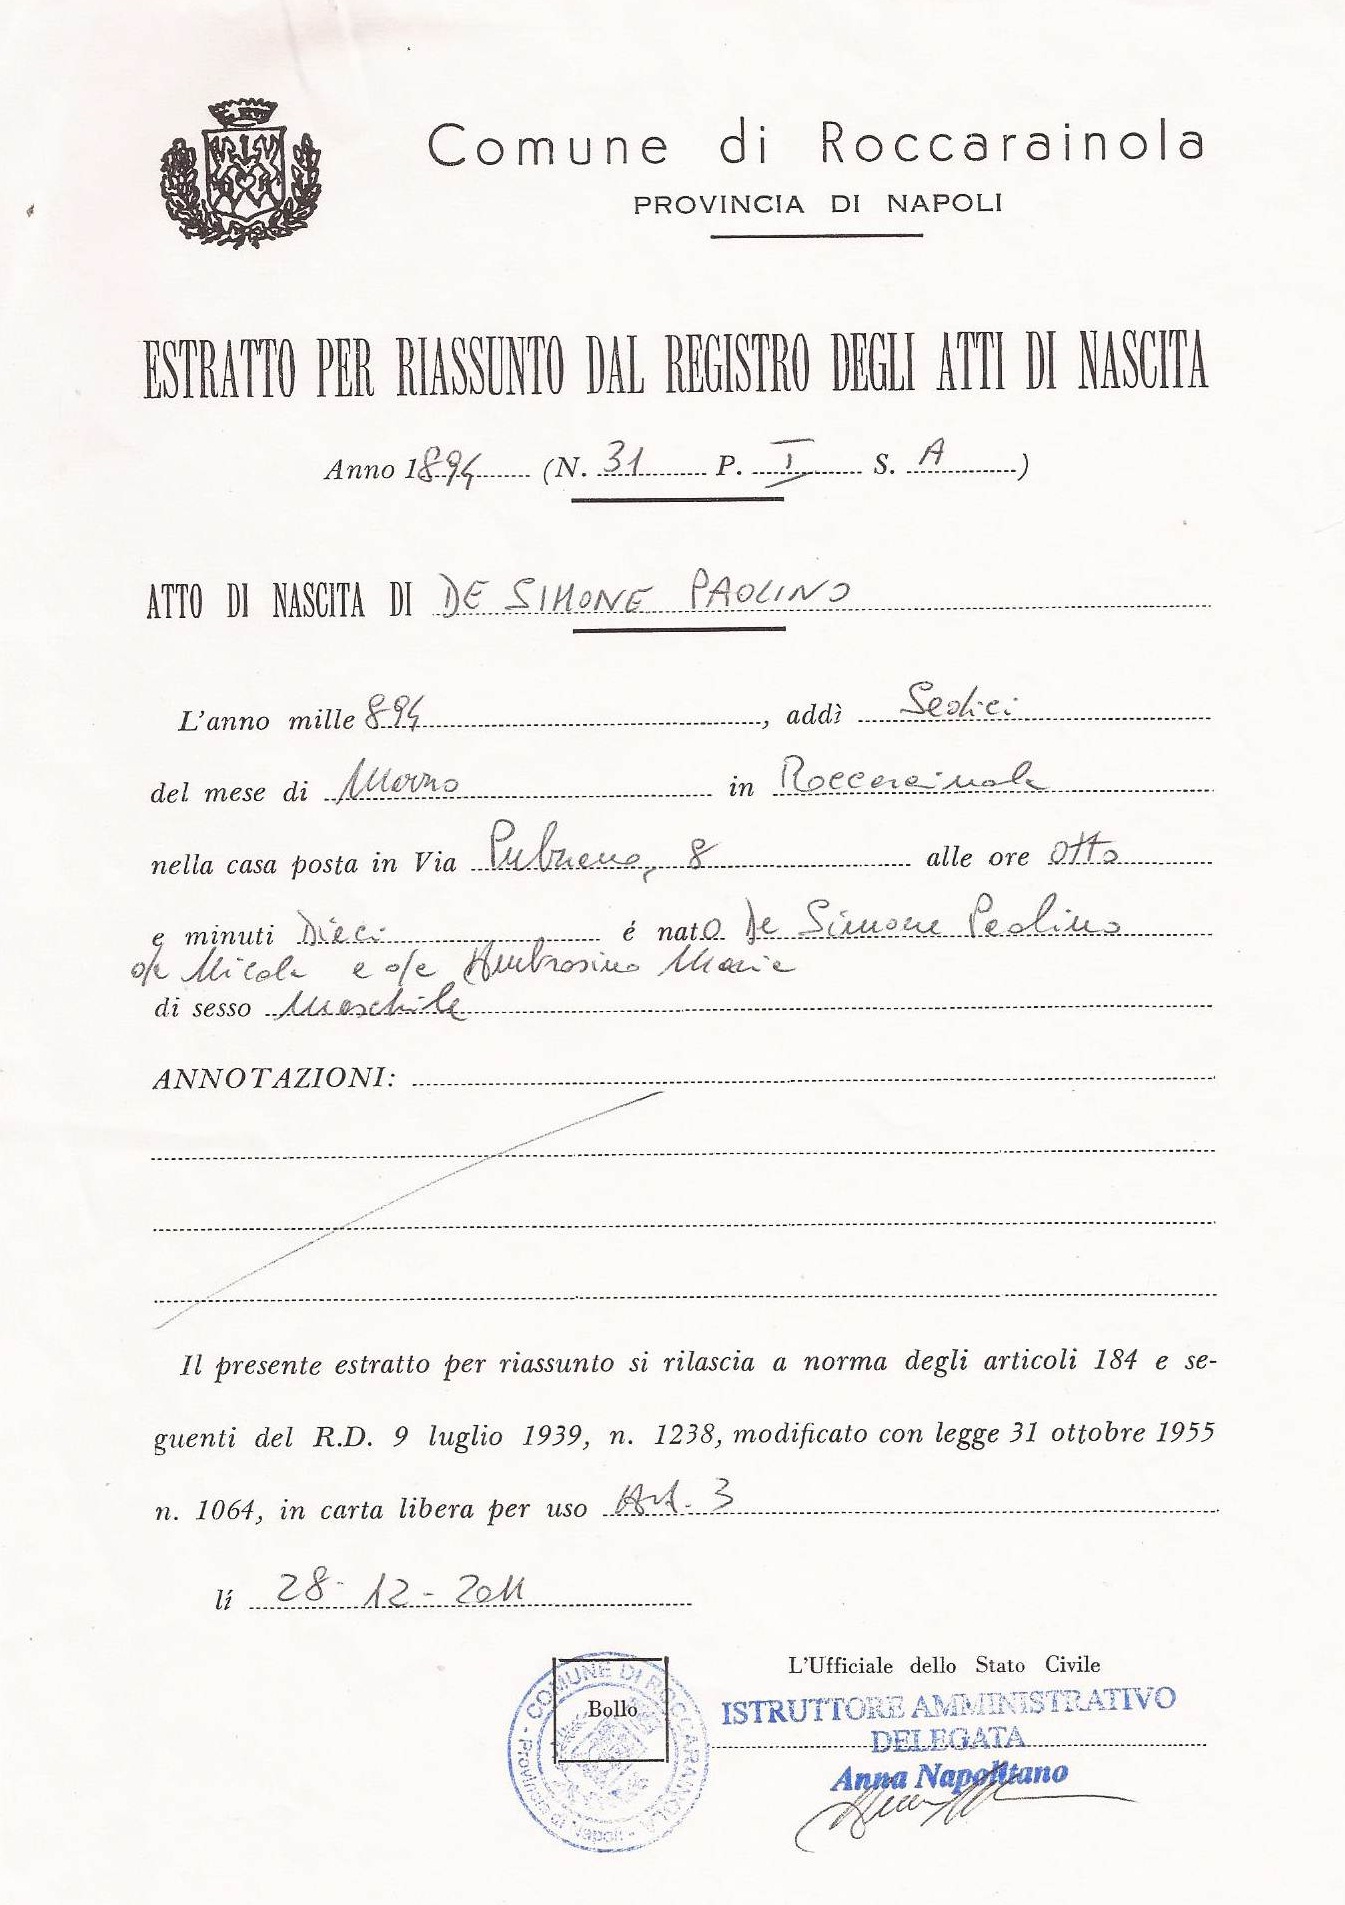 Comune di Roccarainola
PROVINCIA DI NAPOLI
ESTRATTO PER RIASSUNTO DAL REGISTRO DEGLI ATTI DI NASCITA
Anno 1894 (N. 31 P. I S. A)
ATTO DI NASCITA DI DE SIMONE PAOLINO
L'anno mille 894, addì Sedici
del mese di Marzo in Roccarainola
nella casa posta in Via 8 alle ore otto
e minuti Dieci é nato De Simone Paolino
di Nicola e di Ambrosino Maria
di sesso Maschile
ANNOTAZIONI:
Il presente estratto per riassunto si rilascia a norma degli articoli 184 e se-
guenti del R.D. 9 luglio 1939, n. 1238, modificato con legge 31 ottobre 1955
n. 1064, in carta libera per uso Art. 3
lí 28-12-2011
L'Ufficiale dello Stato Civile
ISTRUTTORE AMMINISTRATIVO
DELEGATA
Anna Napolitano
Bollo
COMUNE DI ROCCARAINOLA
- Provincia di Napoli -